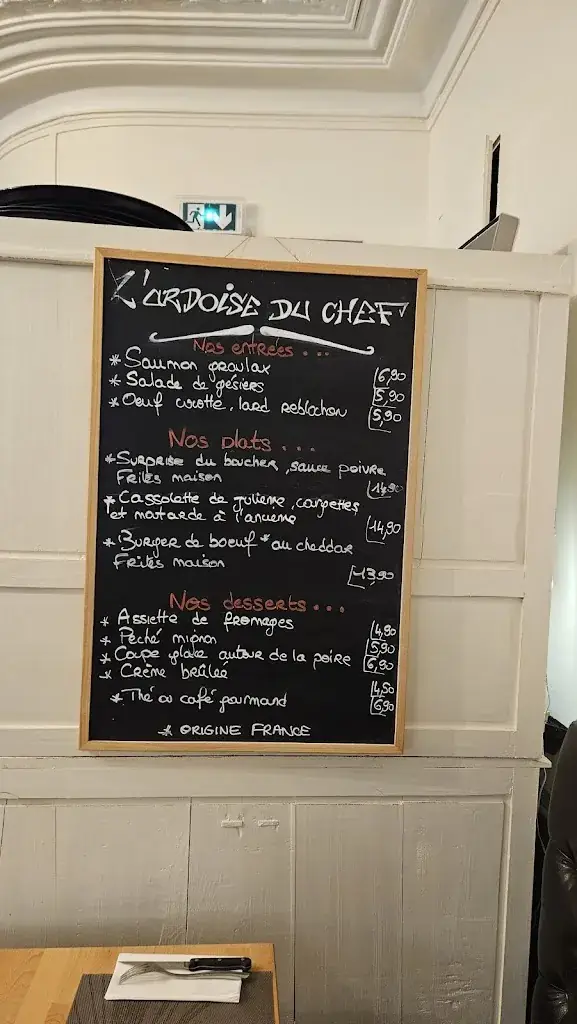 L'ARDOISE DU CHEF
Nos entrées ...
* Saumon gravlax 6,90
* Salade de gésiers 5,90
* Oeuf cocotte, lard reblochon 5,90
Nos plats ...
* SURPRISE du boucher, sauce poivre
Frites maison 14,90
* Cassolette de julienne, courgettes
et moutarde à l'ancienne 14,90
* Burger de boeuf * au cheddar
Frites maison 13,90
Nos desserts ...
* Assiette de fromages 4,90
* Péché mignon 5,90
* Coupe glacée autour de la poire 6,90
* Crème brûlée 4,50
* Thé ou café gourmand 6,90
* ORIGINE FRANCE